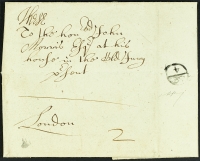 These
To the hon^d John
Morris Esq^r at his
house in the Old Jury
p^rsent
London
2